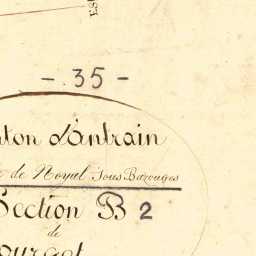 EST
- 35 -
nton d'Antrain
de Noyal Sous Bazouges
Section B 2
de